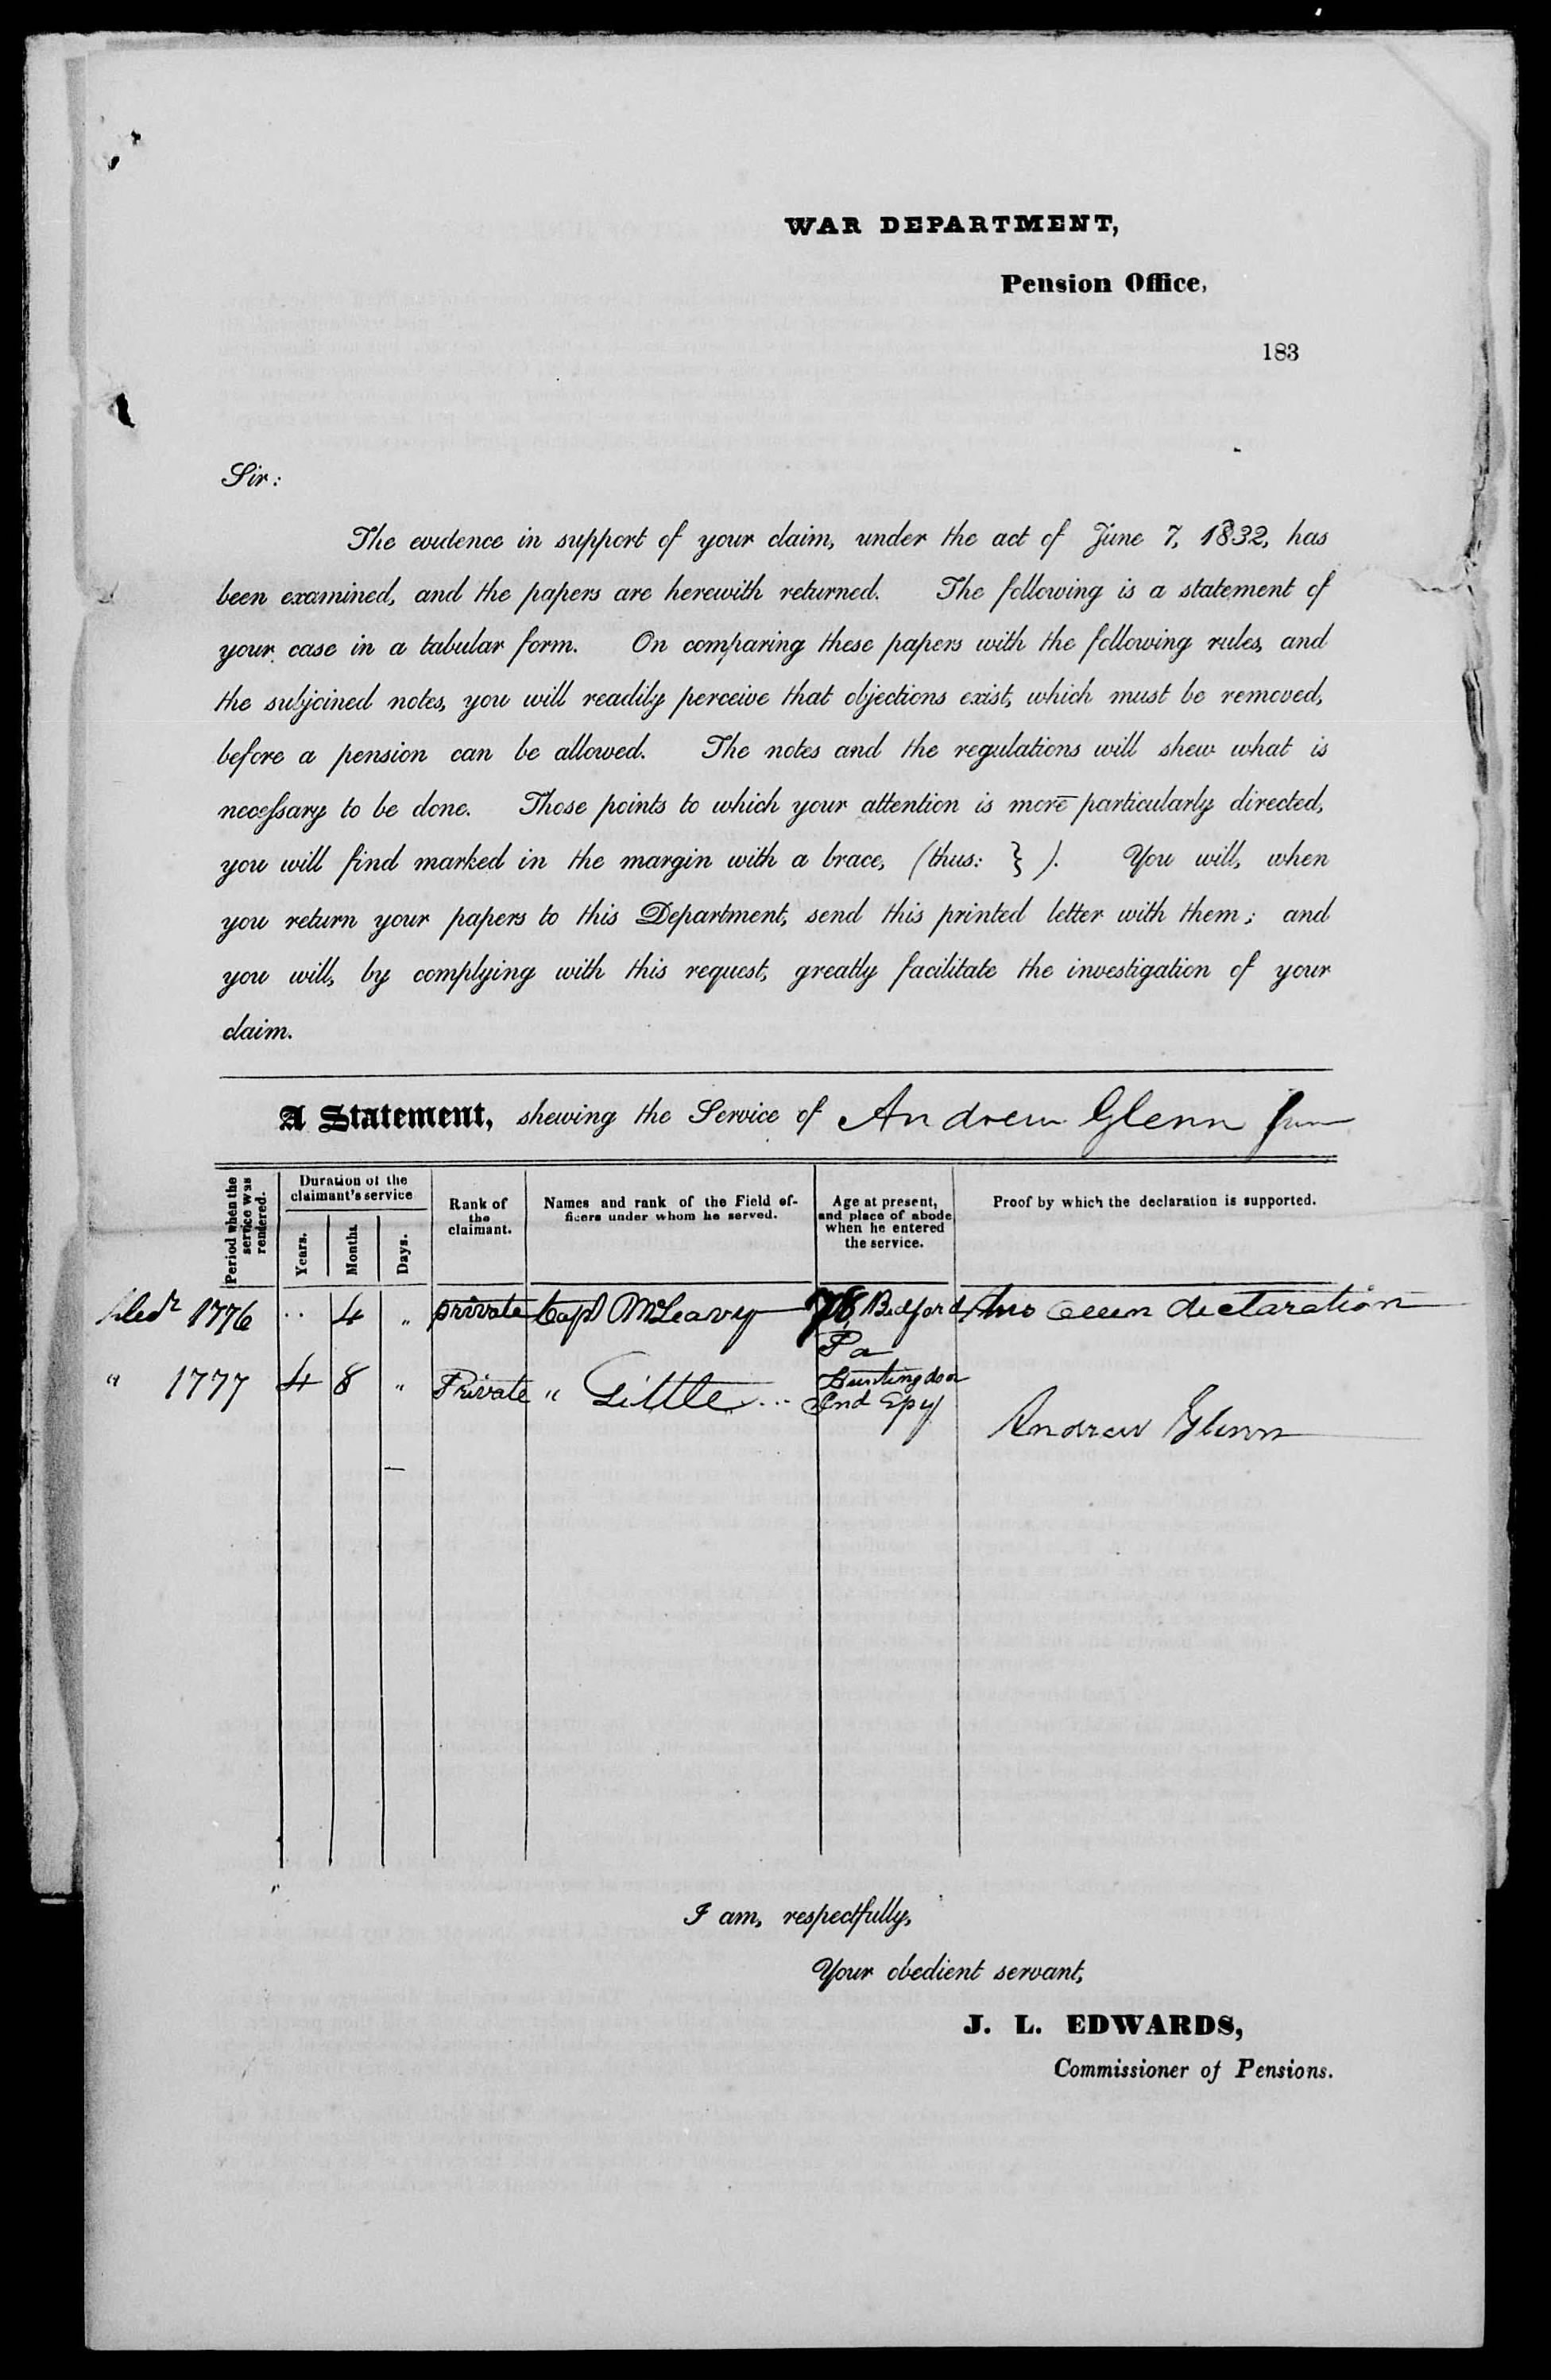 WAR DEPARTMENT,
Pension Office,
183
Sir:
The evidence in support of your claim, under the act of June 7, 1832, has
been examined, and the papers are herewith returned. The following is a statement of
your case in a tabular form. On comparing these papers with the following rules, and
the subjoined notes, you will readily perceive that objections exist, which must be removed,
before a pension can be allowed. The notes and the regulations will shew what is
necessary to be done. Those points to which your attention is more particularly directed,
you will find marked in the margin with a brace, (thus: } ). You will, when
you return your papers to this Department, send this printed letter with them; and
you will, by complying with this request, greatly facilitate the investigation of your
claim.
A Statement, shewing the Service of Andrew Glenn
Period when the service was rendered.
Duration of the claimant's service
Years.
Months.
Days.
Rank of the claimant.
Names and rank of the Field officers under whom he served.
Age at present, and place of abode when he entered the service.
Proof by which the declaration is supported.
1776 .. 4 " private Capt McLeavy 78 Bedford his own declaration
Pa
" 1777 4 8 " Private " Little Huntingdon
Ind Spy
Andrew Glenn
I am, respectfully,
Your obedient servant,
J. L. EDWARDS,
Commissioner of Pensions.